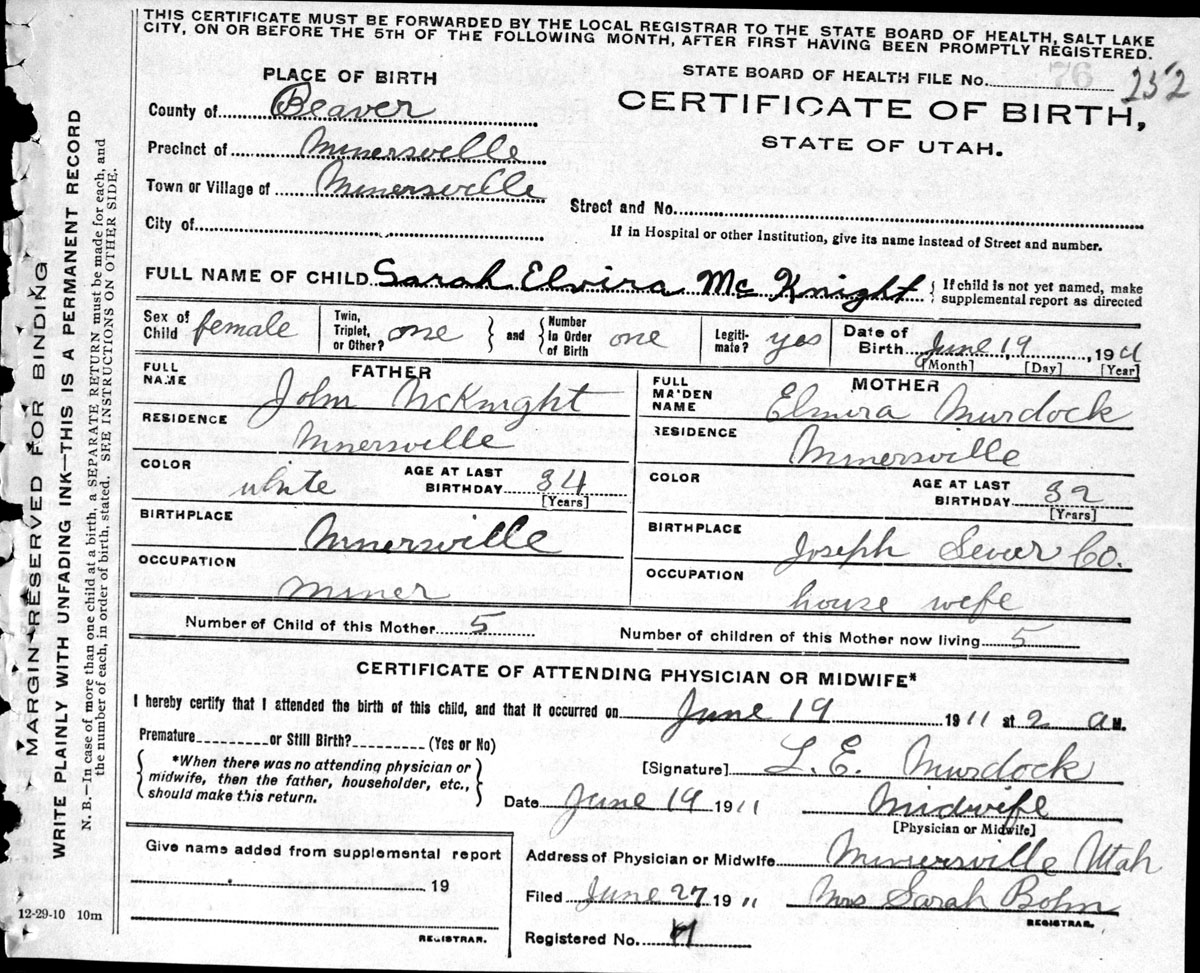 THIS CERTIFICATE MUST BE FORWARDED BY THE LOCAL REGISTRAR TO THE STATE BOARD OF HEALTH, SALT LAKE
CITY, ON OR BEFORE THE 5TH OF THE FOLLOWING MONTH, AFTER FIRST HAVING BEEN PROMPTLY REGISTERED.
MARGIN RESERVED FOR BINDING
WRITE PLAINLY WITH UNFADING INK—THIS IS A PERMANENT RECORD
N. B.—In case of more than one child at a birth, a SEPARATE RETURN must be made for each, and
the number of each, in order of birth, stated. SEE INSTRUCTIONS ON OTHER SIDE.
PLACE OF BIRTH
STATE BOARD OF HEALTH FILE No. 76 252
County of Beaver
CERTIFICATE OF BIRTH,
STATE OF UTAH.
Precinct of Minersville
Town or Village of Minersville
Street and No.
City of
If in Hospital or other Institution, give its name instead of Street and number.
FULL NAME OF CHILD Sarah Elvira McKnight { If child is not yet named, make
supplemental report as directed
Sex of Child female
Twin, Triplet, or Other? one } and { Number in Order of Birth one
Legitimate? yes
Date of Birth June 19, 1911
[Month] [Day] [Year]
FATHER
FULL NAME John McKnight
MOTHER
FULL MAIDEN NAME Elmira Murdock
RESIDENCE Minersville
RESIDENCE Minersville
COLOR white AGE AT LAST BIRTHDAY 34 [Years]
COLOR AGE AT LAST BIRTHDAY 32 [Years]
BIRTHPLACE Minersville
BIRTHPLACE Joseph Sevier Co.
OCCUPATION miner
OCCUPATION house wife
Number of Child of this Mother 5
Number of children of this Mother now living 5
CERTIFICATE OF ATTENDING PHYSICIAN OR MIDWIFE*
I hereby certify that I attended the birth of this child, and that it occurred on June 19 1911 at 2 a M.
Premature or Still Birth? (Yes or No)
{ *When there was no attending physician or
midwife, then the father, householder, etc.,
should make this return. }
[Signature] L. E. Murdock
Date June 19 1911 Midwife
[Physician or Midwife]
Give name added from supplemental report
19
REGISTRAR.
Address of Physician or Midwife Minersville Utah
Filed June 27 1911 Mrs Sarah Bohn
REGISTRAR.
Registered No.
12-29-10 10m